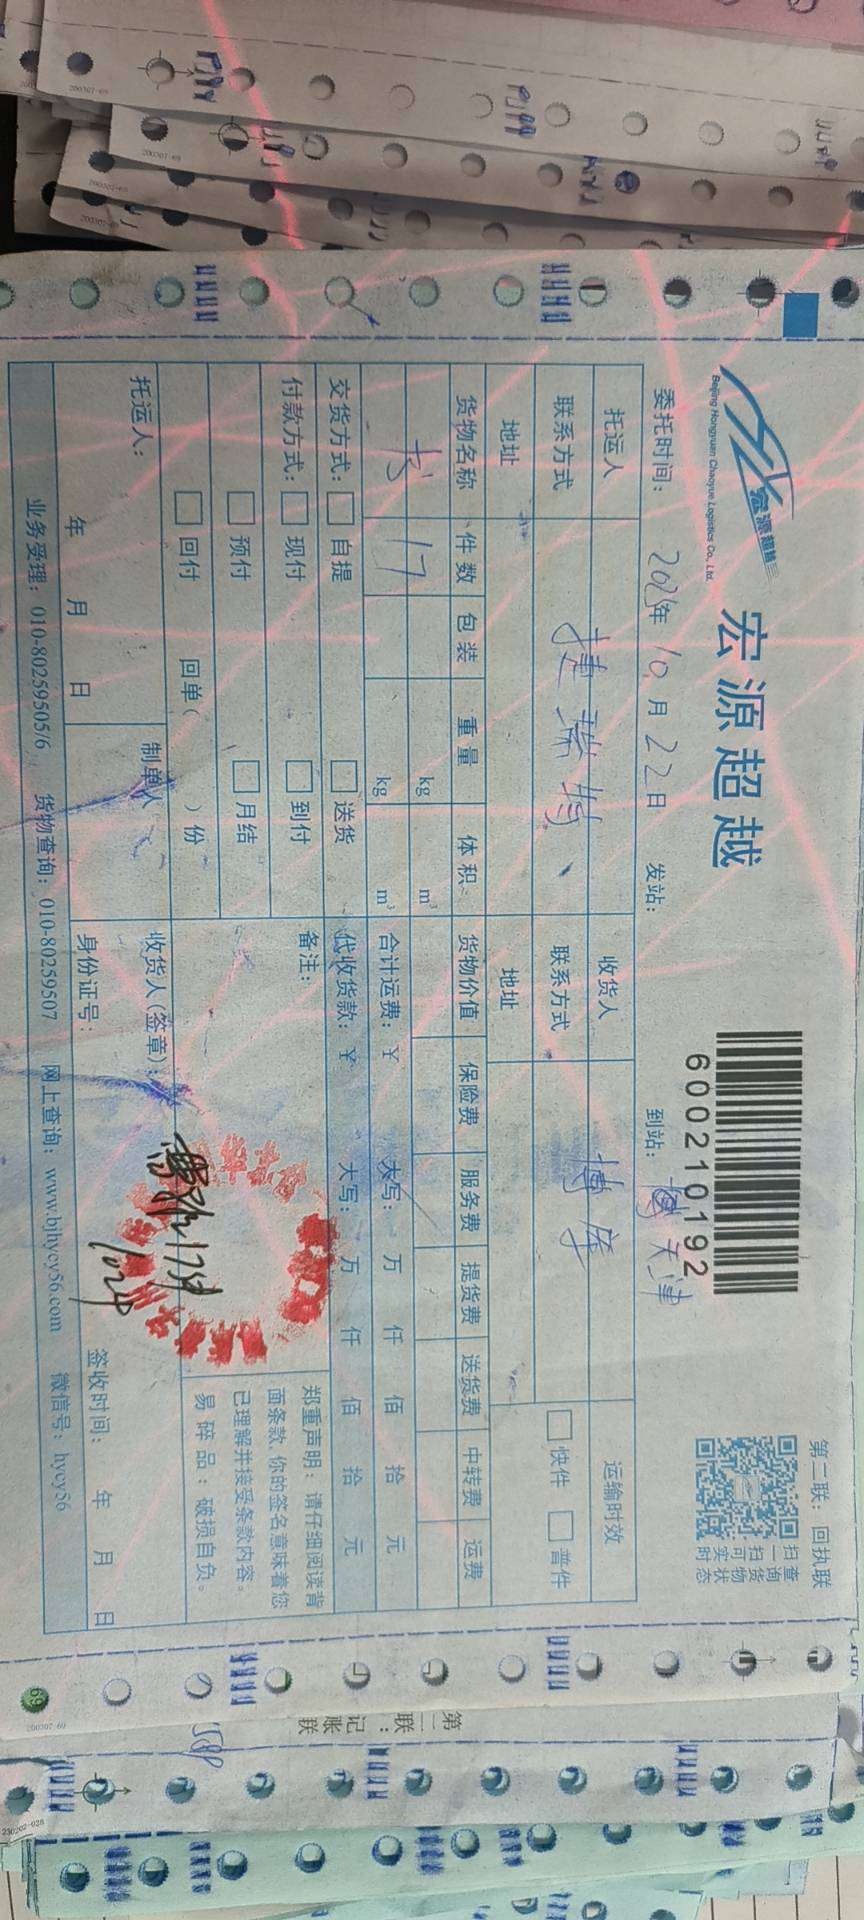 宏源超越
Beijing Hongyuan Chaoyue Logistics Co., Ltd.
宏源超越
600210192
第二联：回执联
扫一扫可实时
查询货物状态
委托时间： 年 10 月 22 日 发站： 到站： 天津
托运人 捷瑞特 收货人 博库 运输时效
联系方式 联系方式 快件 普件
地址 地址
货物名称 件数 包装 重量 体积 货物价值 保险费 服务费 提货费 送货费 中转费 运费
书 17 kg m³
kg m³ 合计运费：￥ 大写： 万 仟 佰 拾 元
交货方式： 自提 送货 代收货款：￥ 大写： 万 仟 佰 拾 元
付款方式： 现付 到付 备注：
预付 月结
回付 回单（ ）份
郑重声明：请仔细阅读背
面条款，你的签名意味着您
已理解并接受条款内容。
易碎品：破损自负。
托运人： 制单人 收货人（签章）：
17件
1024
年 月 日 身份证号： 签收时间： 年 月 日
业务受理：010-80259505/6 货物查询：010-80259507 网上查询：www.bjhycy56.com 微信号：hycy56
200307-69
第二联：记账联
230202-028